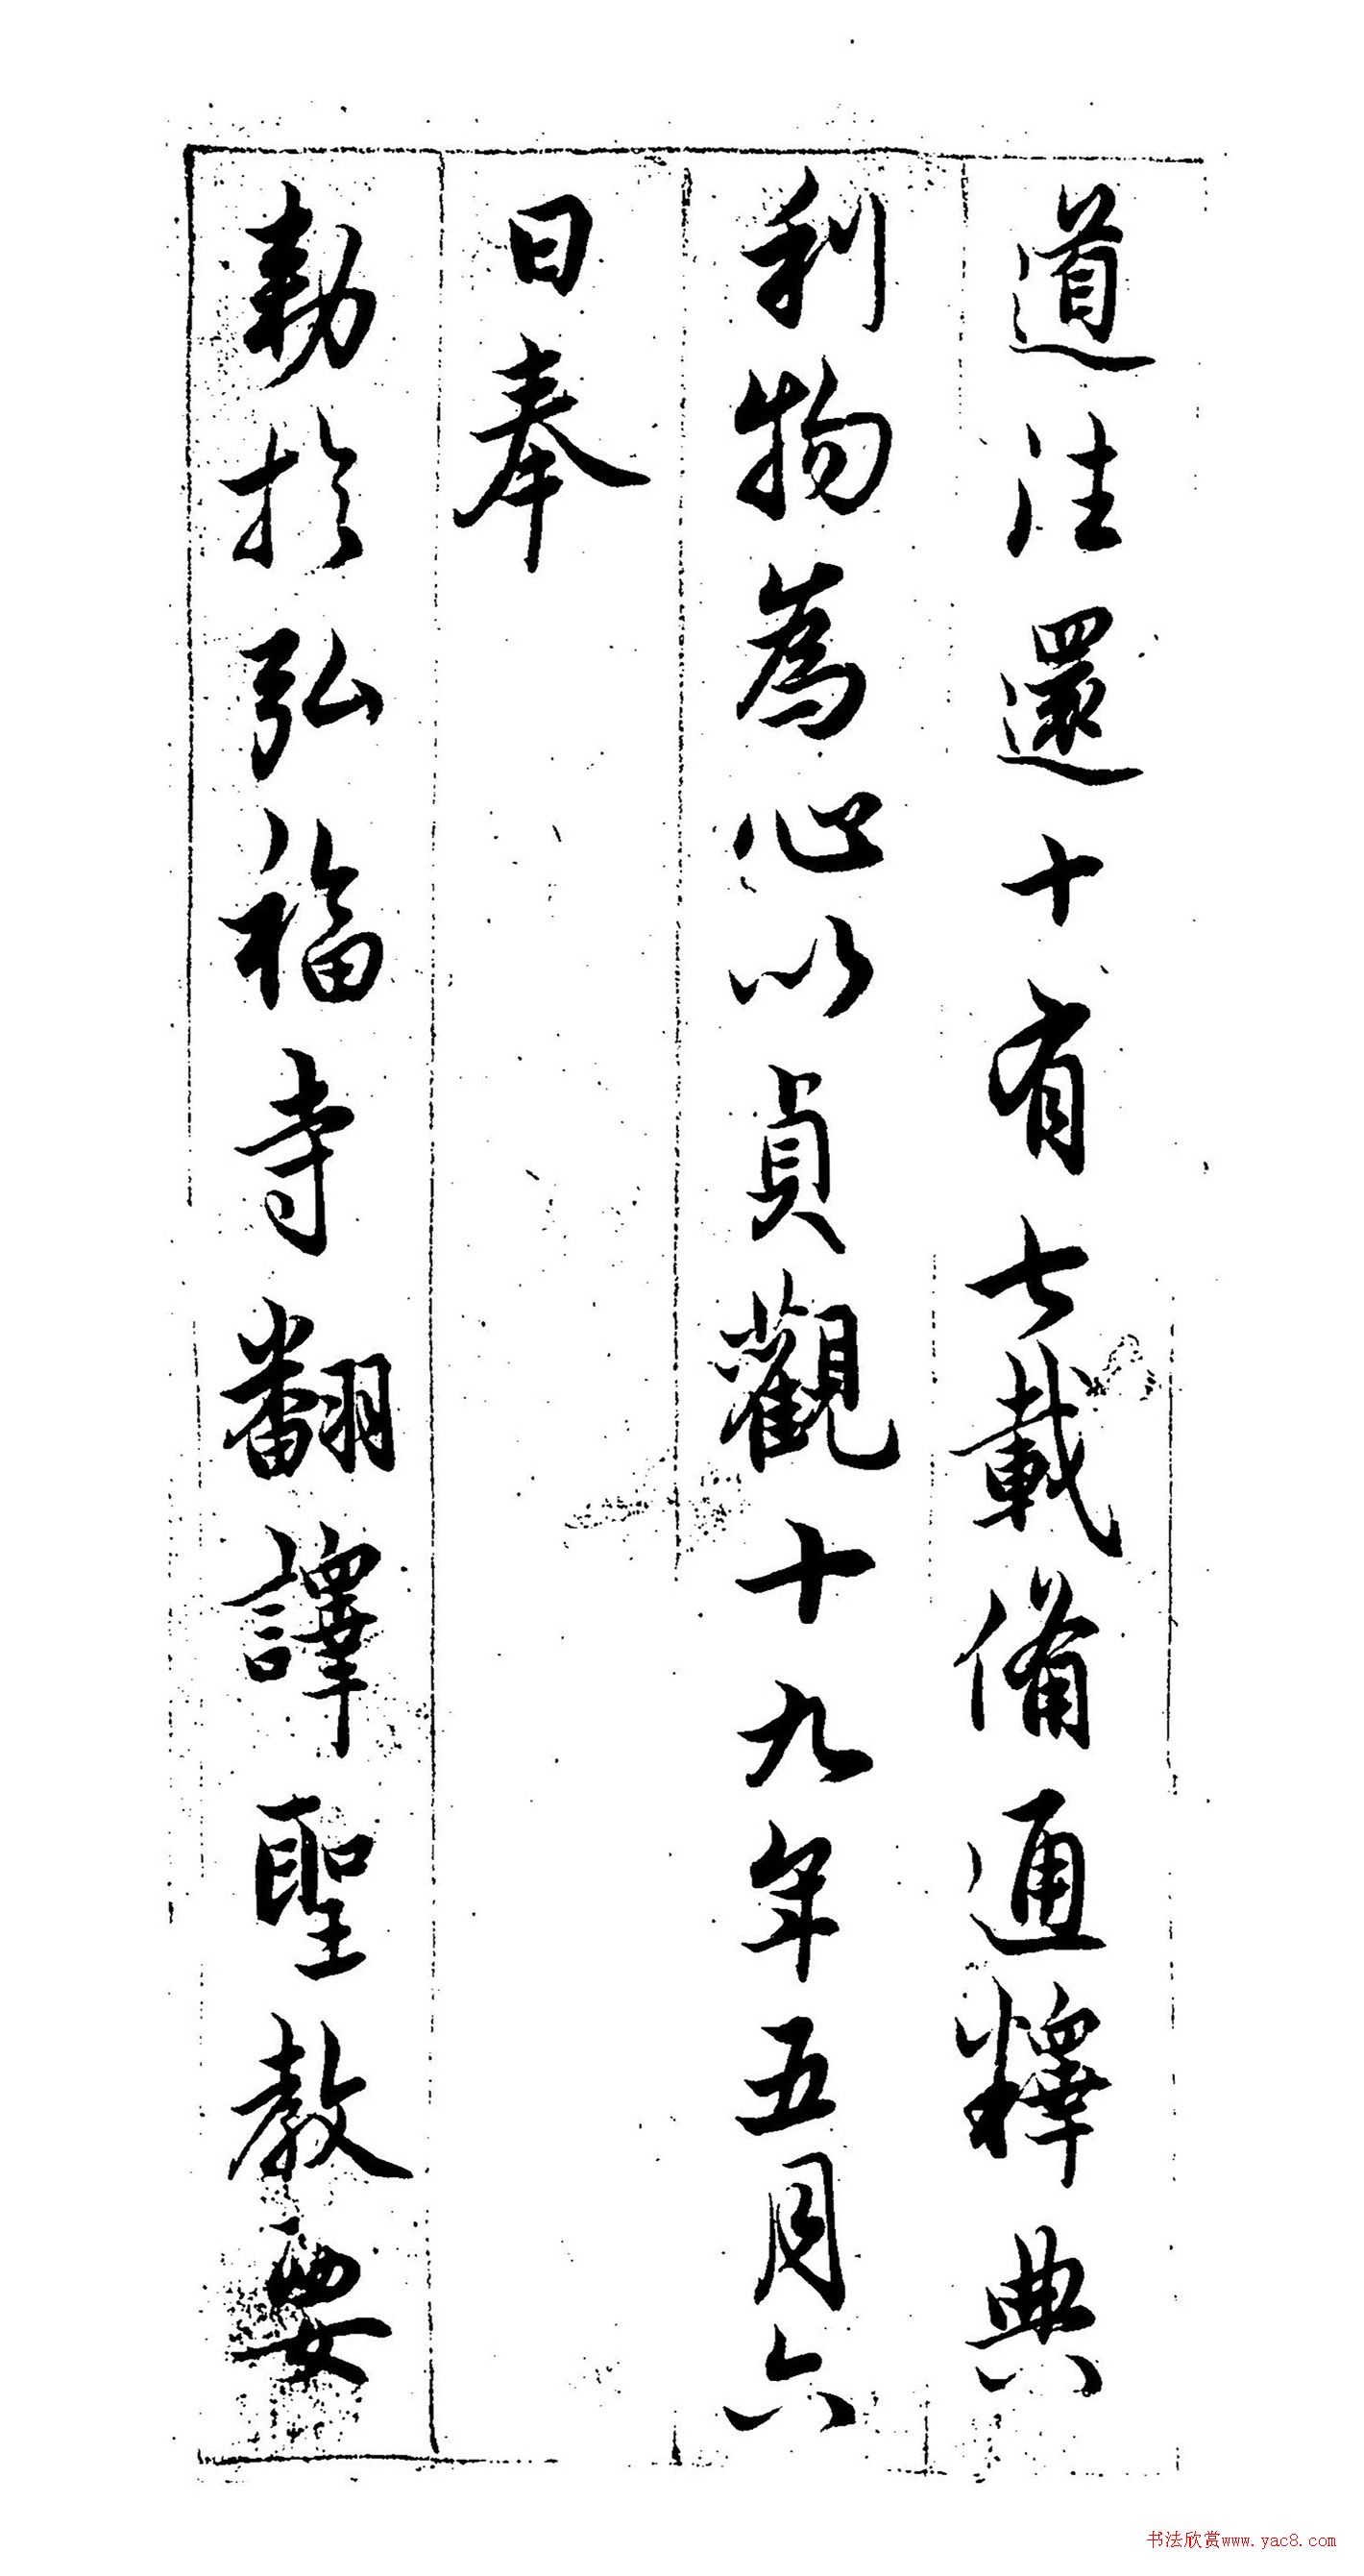 道往還十有七載備通釋典
利物為心以貞觀十九年五月六
日奉
勅於弘福寺翻譯聖教要
书法欣赏www.yac8.com